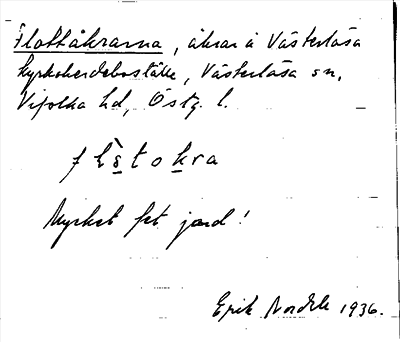 Flottåkrarna, åkrar å Västerlösa
kyrkoherdeboställe, Västerlösa sn,
Vifolka hd, Östg. l.
flå̀tokra
Mycket fet jord!
Erik 1936.